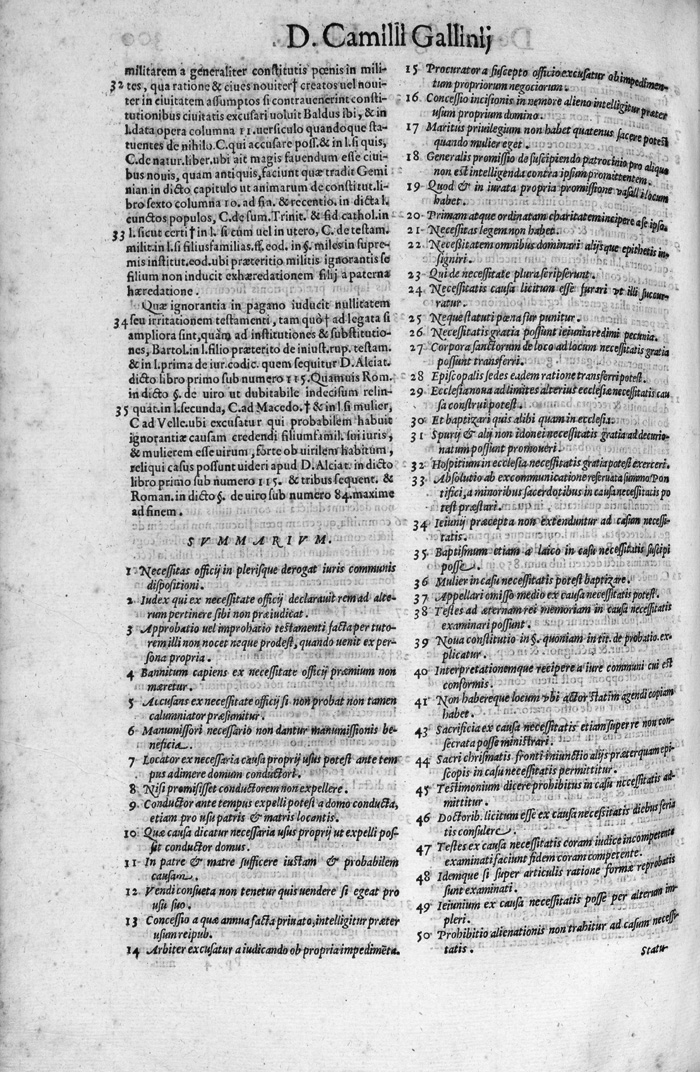 D. Camilli Gallinij
militarem a generaliter constitutis pœnis in mili-
32 tes, qua ratione & ciues nouiter† creatos uel noui-
ter in ciuitatem assumptos si contrauenerint consti-
tutionibus ciuitatis excusari uoluit Baldus ibi, & in
l.data opera columna 11.uersiculo quandoque sta-
tuentes de nihilo. C.qui accusare poss.& in l.si quis,
C.de natur.liber.ubi ait magis fauendum esse ciui-
bus nouis, quam antiquis, faciunt quæ tradit Gemi
nian in dicto capitulo ut animarum de constitut.li-
bro sexto columna 10. ad fin. & recentio. in dicta l.
cunctos populos, C.de sum. Trinit. & fid cathol.in
33 l.sicut certi† in l. si cum uel in utero, C. de testam.
milit.in l.si filiusfamilias.ff. eod. in §. miles in supre-
mis institut.eod.ubi præteritio militis ignorantis se
filium non inducit exhæredationem filij a paterna
hæredatione.
Quæ ignorantia in pagano iuducit nullitatem
34 seu irritationem testamenti, tam quo† ad legata si
ampliora sint, quàm ad institutiones & substitutio-
nes, Bartol.in l.filio præterito de iniust.rup. testam.
& in l.prima de iur.codic. quem sequitur D.Alciat.
dicto libro primo sub numero 115. Quamuis Rom.
in dicto §. de uiro ut dubitabile indecisum relin-
35 quat.in l.secunda, C.ad Macedo. † & in l.si mulier,
C ad Velle.ubi excusatur qui probabilem habuit
ignorantiæ causam credendi filiumfamil. sui iuris,
& mulierem esse uirum, forte ob uirilem habitum,
reliqui casus possunt uideri apud D.Alciat.in dicto
libro primo sub numero 115. & tribus sequent. &
Roman.in dicto §. de uiro sub numero 84.maxime
ad finem.
SVMMARIVM.
1 Necessitas officij in plerisque derogat iuris communis
dispositioni.
2 Iudex qui ex necessitate officij declarauit rem ad alte-
rum pertinere sibi non præiudicat.
3 Approbatio uel improbatio testamenti facta per tuto-
rem illi non nocet neque prodest, quando uenit ex per-
sona propria.
4 Bannitum capiens ex necessitate officij præmium non
mæretur.
5 Accusans ex necessitate officij si non probat non tamen
calumniator præsumitur.
6 Manumissori necessario non dantur manumissionis be-
neficia.
7 Locator ex necessaria causa proprij usus potest ante tem
pus adimere domum conductori.
8 Nisi promisisset conductorem non expellere.
9 Conductor ante tempus expelli potest a domo conducta,
etiam pro usu patris & matris locentis.
10 Quæ causa dicatur necessaria usus proprij ut expelli pos-
sit conductor domus.
11 In patre & matre sufficere iustam & probabilem
causam.
12 Vendi consueta non tenetur quis uendere si egeat pro
usu suo.
13 Concessio a quæ annua facta priuato, intelligitur præter
usum reipub.
14 Arbiter excusatur a iudicando ob propria impedimēta.
15 Procurator a suscepto officio excusatur ob impedimen-
tum propriorum negociorum.
16 Concessio incisionis in nemore alieno intelligitur præter
usum proprium domino.
17 Maritus priuilegium non habet quatenus facere potest
quando mulier eget.
18 Generalis promissio de suscipiendo patrocinio pro aliquo
non est intelligenda contra ipsum promittentem.
19 Quod & in iurata propria promissione vasalli locum
habet.
20 Primam atque ordinatam charitatem incipere a se ipso.
21 Necessitas legem non habet.
22 Necessitatem omnibus dominari alijsque epithetis in-
signiri.
23 Qui de necessitate plura scripserunt.
24 Necessitatis causa licitum esse furari vt illi succur-
ratur.
25 Neque statuti pœna fur punitur.
26 Necessitatis gratia possunt ieiunia redimi pecunia.
27 Corpora sanctorum de loco ad locum necessitatis gratia
possunt transferri.
28 Episcopalis sedes eadem ratione transferri potest.
29 Ecclesia noua ad limites alterius ecclesiæ necessitatis cau
sa construi potest.
30 Et baptizari quis alibi quam in ecclesia.
31 Spurij & alij non idonei necessitatis gratia ad decurio-
natum possunt promoueri.
32 Hospitium in ecclesia necessitatis gratia potest exerceri.
33 Absolutio ab excommunicatione reseruata summo Pon
tifici, a minoribus sacerdotibus in causa necessitatis po
test præstari.
34 Ieiunij præcepta non extenduntur ad casum necessi-
tatis.
35 Baptismum etiam a laico in casu necessitatis suscipi
posse.
36 Mulier in casu necessitatis potest baptizare.
37 Appellari omisso medio ex causa necessitatis potest.
38 Testes ad æternam rei memoriam in causa necessitatis
examinari possunt.
39 Noua constitutio in §. quoniam in tit. de probatio. ex-
plicatur.
40 Interpretationemque recipere a iure communi cui est
conformis.
41 Non habereque locum vbi actor statim agendi copiam
habet.
43 Sacrificia ex causa necessitatis etiam super re non con-
secrata posse ministrari.
44 Sacri chrismatis fronti iniunctio alijs præterquam epi-
scopis in casu necessitatis permittitur.
45 Testimonium dicere prohibitus in casu necessitatis ad-
mittitur.
46 Doctorib. licitum esse ex causa necessitatis diebus feria
tis consulere.
47 Testes ex causa necessitatis coram iudice incompetente
examinati faciunt fidem coram competente.
48 Idemque si super articulis ratione formæ reprobatis
sunt examinati.
49 Ieiunium ex causa necessitatis posse per alterum im-
pleri.
50 Prohibitio alienationis non trahitur ad casum necessi-
tatis.
Statu